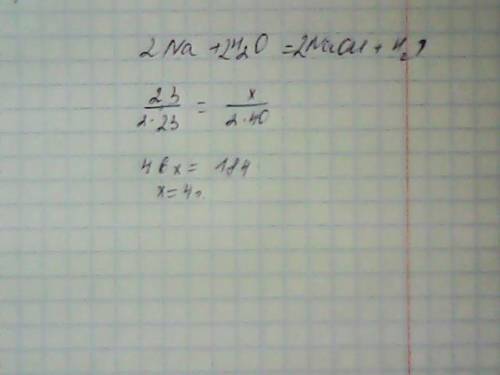 2Na + 2H₂O = 2NaOH + H₂↑
23 / 2·23 = x / 2·40
46x = 184
x = 4г.